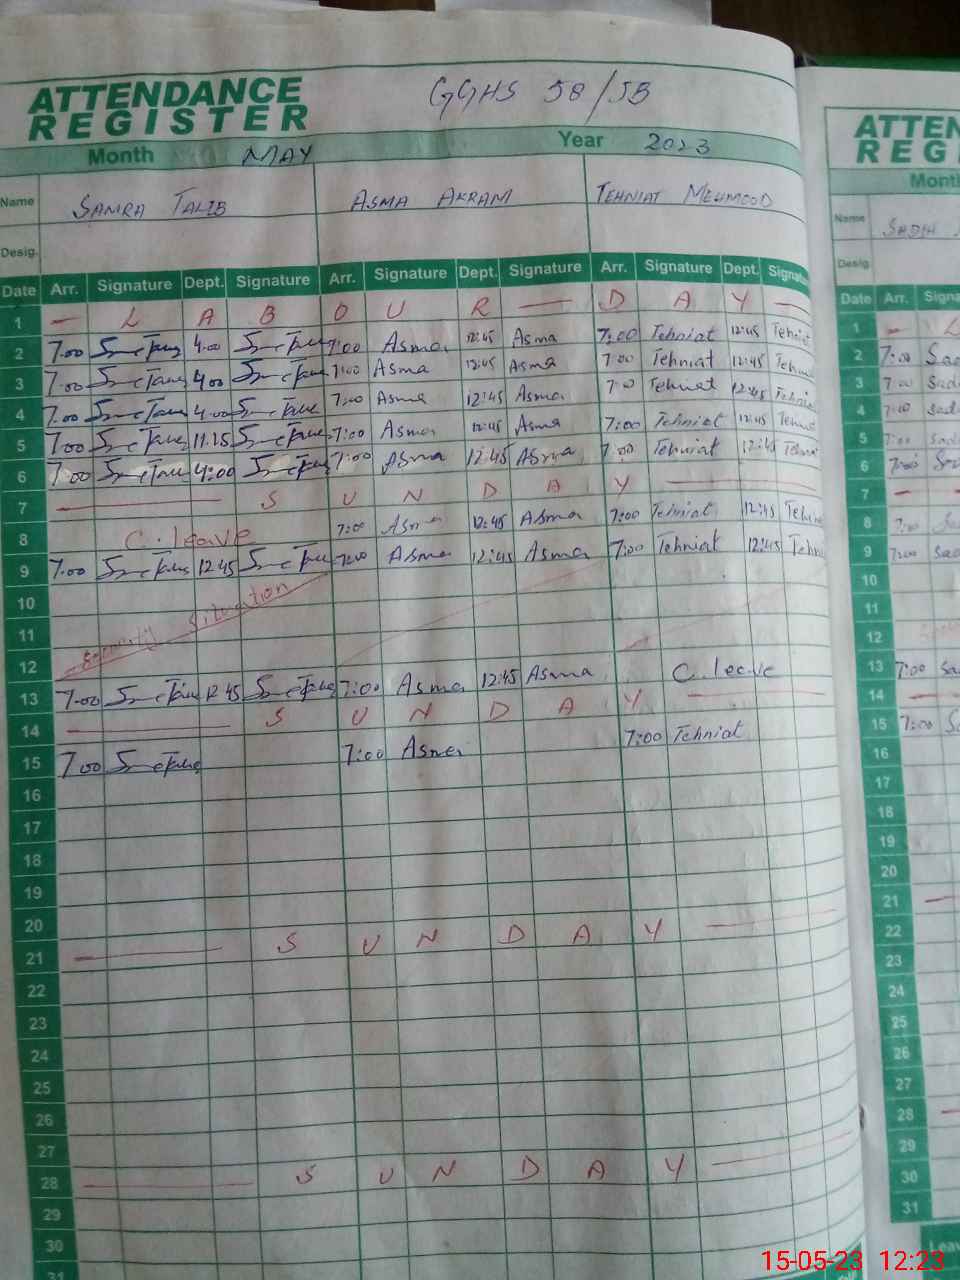 ATTENDANCE REGISTER GGHS 58/5B
Month MAY Year 2023
Name SAMRA TALIB ASMA AKRAM TEHNIAT MEHMOOD
Desig.
Date Arr. Signature Dept. Signature Arr. Signature Dept. Signature Arr. Signature Dept. Signatu
1 — L A B O U R — D A Y —
2 7:00 4:00 7:00 Asma 12:45 Asma 7:00 Tehniat 12:45 Tehniat
3 7:00 4:00 7:00 Asma 12:45 Asma 7:00 Tehniat 12:45 Tehni
4 7:00 4:00 7:00 Asma 12:45 Asma 7:00 Tehniat 12:45 Tehnia
5 7:00 11:15 7:00 Asma 12:45 Asma 7:00 Tehniat 12:45 Tehni
6 7:00 4:00 7:00 Asma 12:45 Asma 7:00 Tehniat 12:45 Tehni
7 — S U N D A Y —
8 C. leave 7:00 Asma 12:45 Asma 7:00 Tehniat 12:45 Tehni
9 7:00 12:45 7:00 Asma 12:45 Asma 7:00 Tehniat 12:45 Tehni
10
11 Security Situation
12
13 7:00 12:45 7:00 Asma 12:45 Asma C. leave
14 — S U N D A Y —
15 7:00 7:00 Asma 7:00 Tehniat
16
17
18
19
20
21 — S U N D A Y —
22
23
24
25
26
27
28 — S U N D A Y —
29
30
31
ATTEN
REG
Month
Name
Desig
Date Arr. Signa
1 — L
2 7:00 Sad
3 7:00 Sad
4 7:00 Sad
5 7:00 Sad
6 7:00
7 —
8 7:00
9 7:00 Sad
10
11
12
13 7:00 Sa
14 —
15 7:00
16
17
18
19
20
21 —
22
23
24
25
26
27
28 —
29
30
31
Leav
15-05-23 12:23